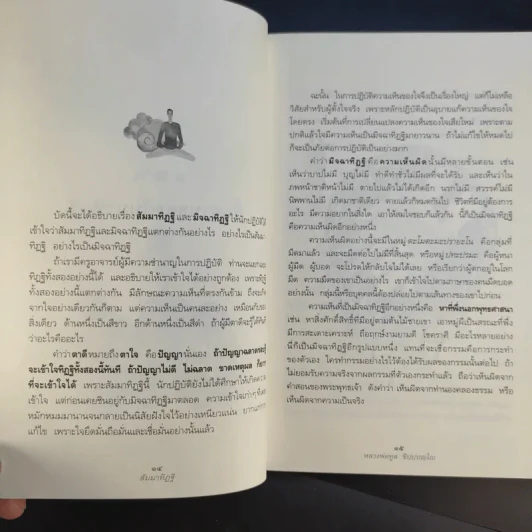 บัดนี้จะได้อธิบายเรื่อง สัมมาทิฏฐิ และ มิจฉาทิฏฐิ ให้นักปฏิบัติได้
เข้าใจว่าสัมมาทิฏฐิและมิจฉาทิฏฐิแตกต่างกันอย่างไร อย่างไรเป็นสัมมา
ทิฏฐิ อย่างไรเป็นมิจฉาทิฏฐิ
ถ้าเรามีครูอาจารย์ผู้มีความชำนาญในการปฏิบัติ ท่านจะแยก
ทิฏฐิทั้งสองอย่างนี้ได้ และอธิบายให้เราเข้าใจได้อย่างถูกต้อง เพราะทิฏฐิ
ทั้งสองอย่างนี้แตกต่างกัน มีลักษณะความเห็นที่ตรงกันข้าม ถึงจะเกิด
จากใจอย่างเดียวกันก็ตาม แต่ความเห็นเป็นคนละอย่าง เหมือนกับของ
สิ่งเดียว ด้านหนึ่งเป็นสีขาว อีกด้านหนึ่งเป็นสีดำ ถ้าผู้มีตาดีจะรู้ได้ทันที
ว่าอะไรคืออะไร
คำว่า ตาดี หมายถึง ตาใจ คือ ปัญญา นั่นเอง ถ้าปัญญาฉลาดหลักแหลม
จะเข้าใจทิฏฐิทั้งสองนี้ทันที ถ้าปัญญาไม่ดี ไม่ฉลาด ขาดเหตุผล ก็ยาก
ที่จะเข้าใจได้ เพราะสัมมาทิฏฐินี้ นักปฏิบัติยังไม่ได้ศึกษาให้เกิดความ
เข้าใจ แต่ก่อนเคยชินอยู่กับมิจฉาทิฏฐิมาตลอด ความเข้าใจเก่าๆ ที่เคย
หมักหมมมานานจนกลายเป็นนิสัยฝังใจไว้อย่างเหนียวแน่น ยากที่จะ
แก้ไข เพราะใจยึดมั่นถือมั่นและเชื่อมั่นอย่างนั้นแล้ว
๑๔
สัมมาทิฏฐิ
ฉะนั้น ในการปฏิบัติความเห็นของใจจึงเป็นเรื่องใหญ่ แต่ก็ไม่เหลือ
วิสัยสำหรับผู้ตั้งใจจริง เพราะหลักปฏิบัติเป็นอุบายแก้ความเห็นของใจ
โดยตรง เริ่มต้นที่การเปลี่ยนแปลงความเห็นของใจเสียใหม่ เพราะตาม
ปกติแล้วใจมีความเห็นเป็นมิจฉาทิฏฐิมายาวนาน ถ้าไม่แก้ไขให้หมดไป
ก็จะเป็นภัยต่อการปฏิบัติเป็นอย่างมาก
คำว่า มิจฉาทิฏฐิ คือ ความเห็นผิด นั้นมีหลายขั้นตอน เช่น
เห็นว่าบาปไม่มี บุญไม่มี ทำดีทำชั่วไม่มีผลที่จะได้รับ และเห็นว่าใน
ภพหน้าชาติหน้าไม่มี ตายไปแล้วไม่ได้เกิดอีก นรกไม่มี สวรรค์ไม่มี
นิพพานไม่มี เกิดมาชาติเดียว ตายแล้วก็หมดกันไป ชีวิตที่มีอยู่ต้องการ
อะไร มีความอยากในสิ่งใด เอาให้สมใจชอบก็แล้วกัน นี้ก็เป็นมิจฉาทิฏฐิ
คือความเห็นผิดอีกอย่างหนึ่ง
ความเห็นผิดอย่างนี้จะมีในหมู่ ตะโมตะมะปะรายะโน คือกลุ่มที่
มืดมาแล้ว และจะมืดต่อไปไม่มีที่สิ้นสุด หรือหมู่ปทะปรมะ คือผู้หนา
ผู้มืด ผู้บอด จะโปรดให้กลับใจไม่ได้เลย หรือเรียกว่าผู้ตกอยู่ในโลก
มืด ความมืดของเขาเป็นอย่างไร เขาก็เข้าใจไปตามภาษาของคนมืดบอด
อย่างนั้น กลุ่มนี้หรือบุคคลนี้ต้องปล่อยไปตามเส้นทางของเขาไปก่อน
ความเห็นที่เป็นมิจฉาทิฏฐิอีกอย่างหนึ่งคือ หาที่พึ่งนอกพุทธศาสนา
เช่น หาสิ่งศักดิ์สิทธิ์ที่มีอยู่ตามต้นไม้ชายเขา เอาหมู่ผีเป็นสรณะที่พึ่ง
มีการสะเดาะเคราะห์ ถือฤกษ์งามยามดี โชคราศี มีอะไรหลายอย่าง
นี้ก็เป็นมิจฉาทิฏฐิอีกรูปแบบหนึ่ง แทนที่จะเชื่อกรรมคือการกระทำ
ของตัวเอง ใครทำกรรมอย่างไรไว้ต้องได้รับผลของกรรมนั้นต่อไป ถ้า
ไม่ยอมรับความจริงจากผลกรรมที่ตัวเองกระทำแล้ว ถือว่าเห็นผิดจาก
คำสอนของพระพุทธเจ้า ดังคำว่า เห็นผิดจากทำนองคลองธรรม หรือ
เห็นผิดจากความเป็นจริง
๑๕
หลวงพ่อทูล ขิปฺปปญฺโญ